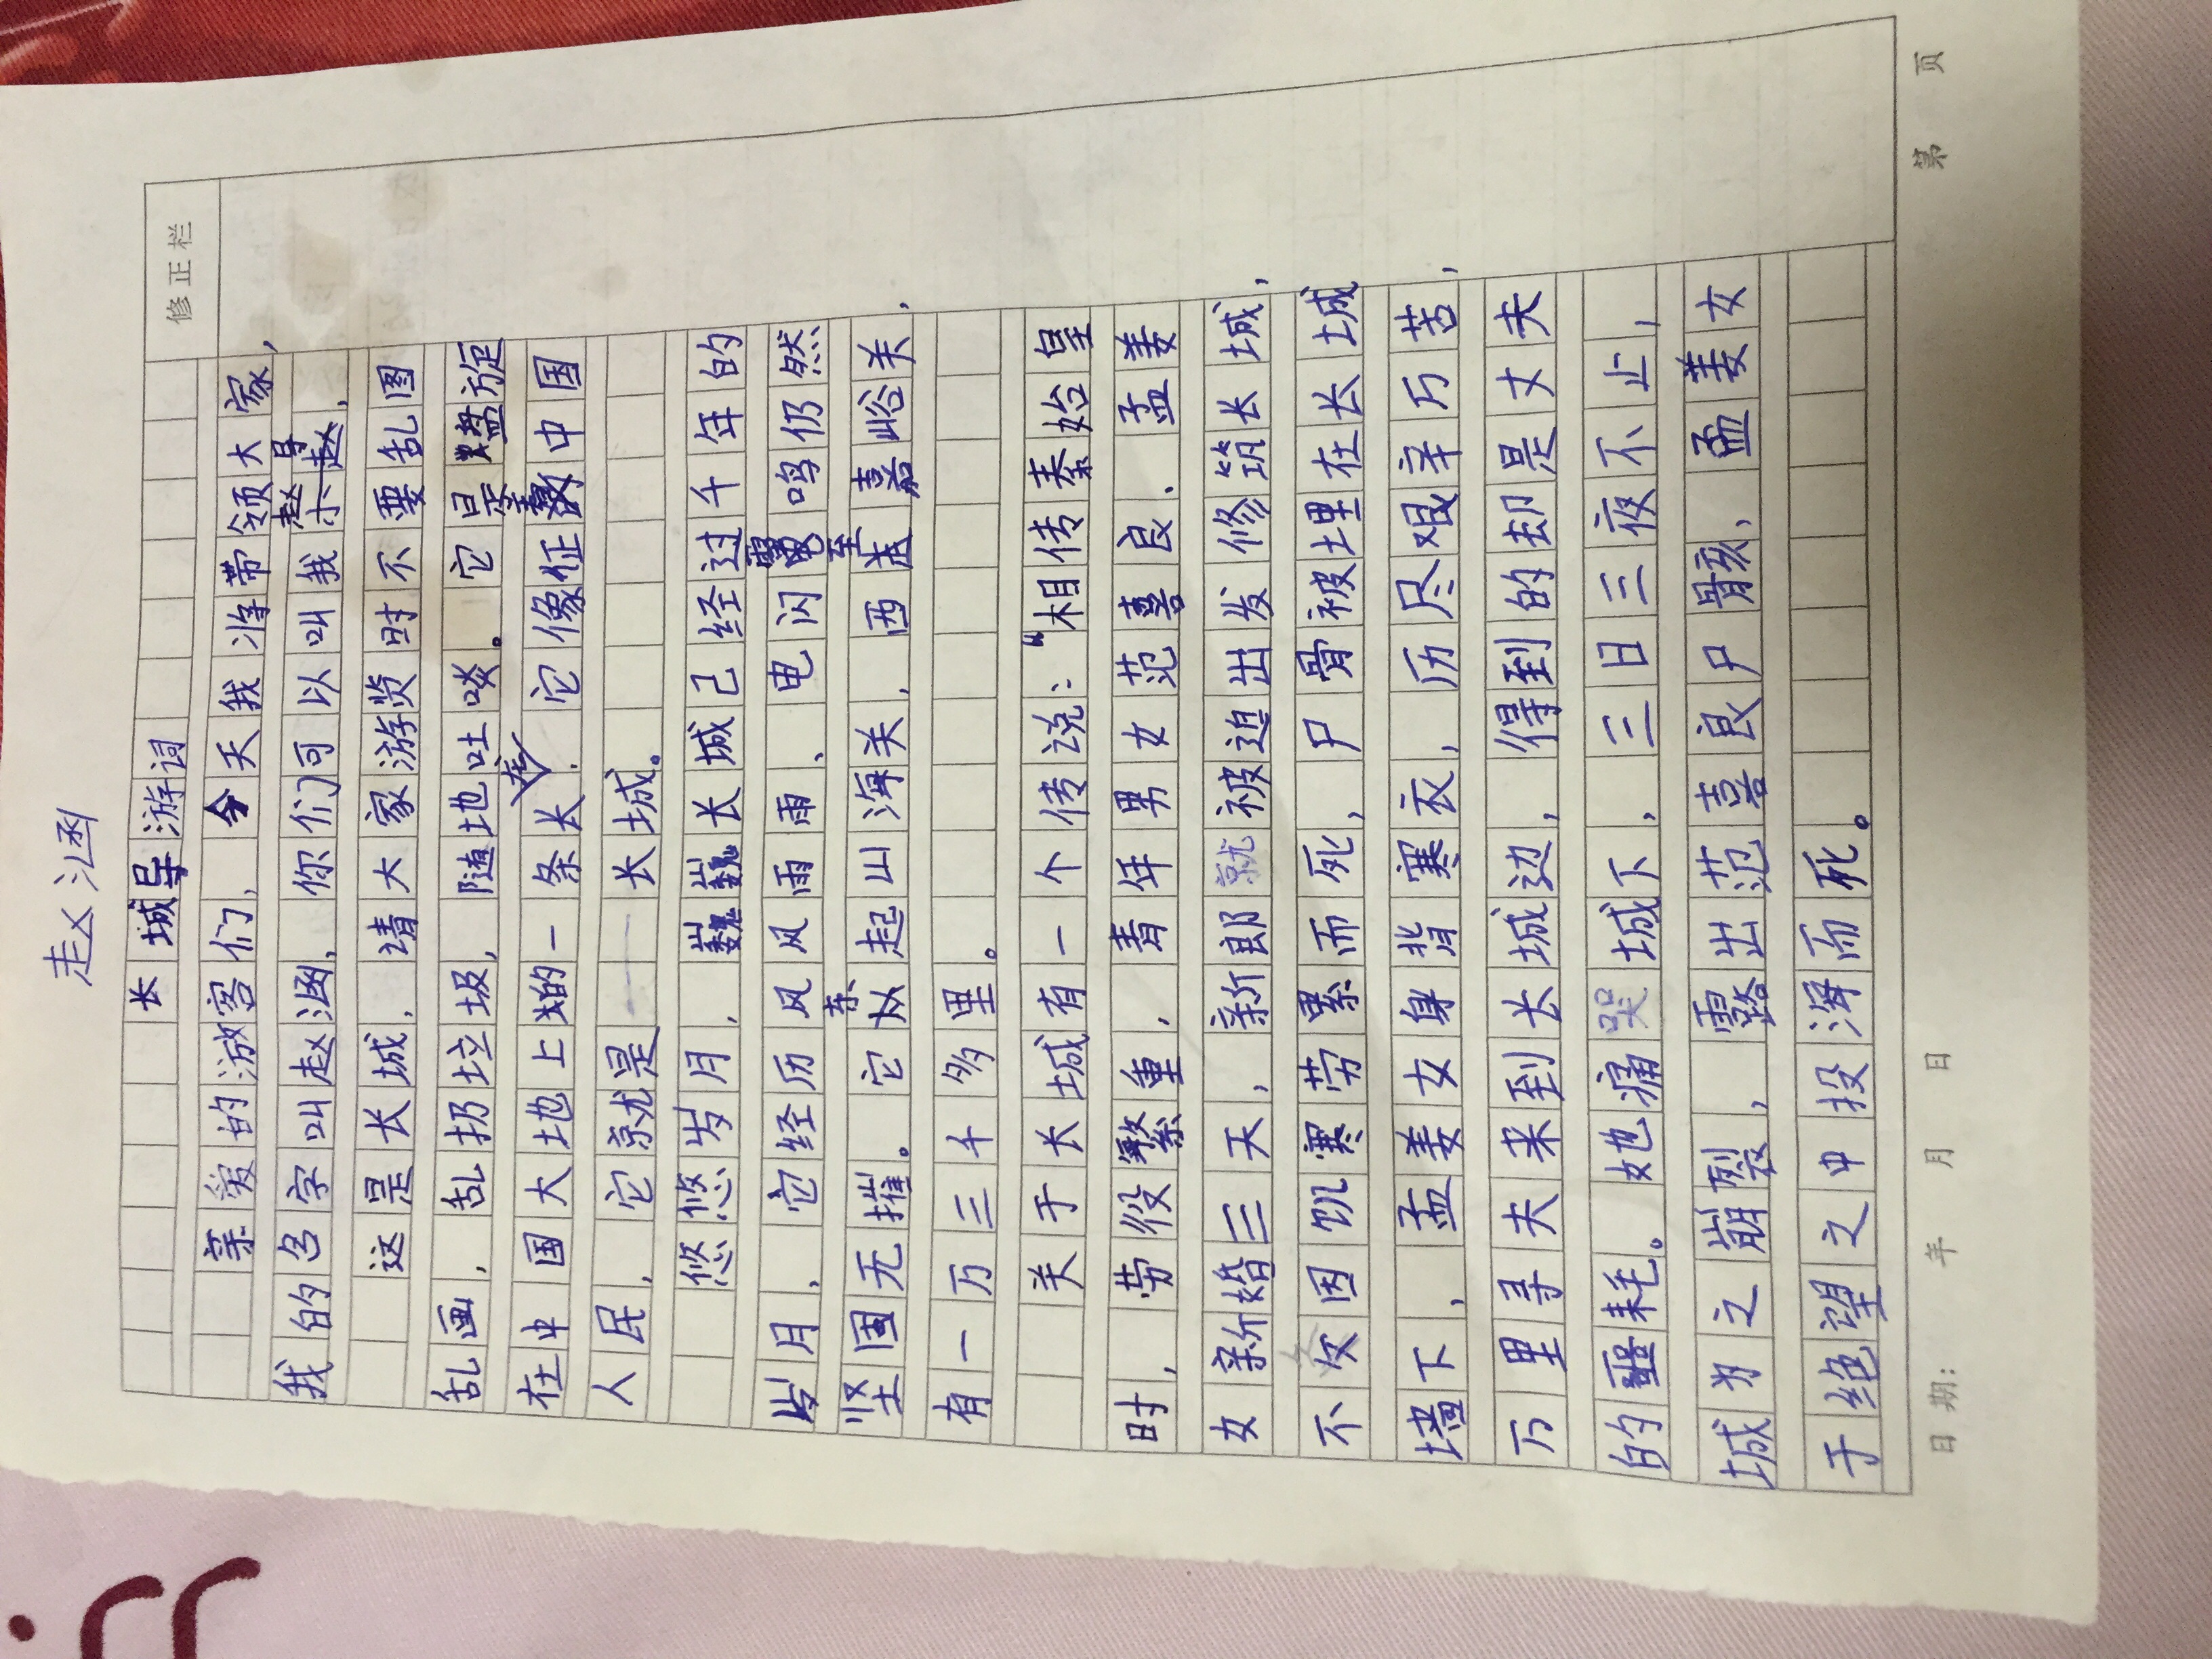 赵汹函
长城导游词
修正栏
亲爱的游客们，今天我将带领大家，
我的名字叫赵涵，你们可以叫我赵导，
这是长城，请大家游览时不要乱图
乱画，乱扔垃圾，随地吐啖。它是盘旋
在中国大地上的一条长龙，它像征着中国
人民，它就是长城。
悠悠岁月，巍巍长城已经过千年的
岁月，它经历风风雨雨、电闪雷鸣仍然
坚固无摧。它东起山海关，西至嘉峪关，
有一万三千多里。
关于长城有一个传说：“相传秦始皇
时，劳役繁重，青年男女范喜良、孟姜
女新婚三天，新郎就被迫出发修筑长城，
不久因饥寒劳累而死，尸骨被埋在长城
墙下，孟姜女身背寒衣，历尽艰辛万苦，
万里寻夫来到长城边，得到的却是丈夫
的噩耗。她痛哭城下，三日三夜不止，
城为之崩裂，露出范喜良尸骸，孟姜女
于绝望之中投海而死。
日期： 年 月 日 第 页